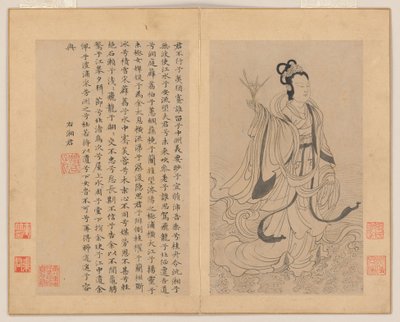 君不行兮夷猶蹇誰留兮中洲美要眇兮宜修沛吾乘兮桂舟令沅湘兮
無波使江水兮安流望夫君兮未來吹參差兮誰思駕飛龍兮北征邅吾道
兮洞庭薜荔柏兮蕙綢蓀橈兮蘭旌望涔陽兮極浦橫大江兮揚靈兮
未極女嬋媛兮為余太息橫流涕兮潺湲隱思君兮陫側桂櫂兮蘭枻斲
冰兮積雪采薜荔兮水中搴芙蓉兮木末心不同兮媒勞恩不甚兮輕
絕石瀨兮淺淺飛龍兮翩翩交不忠兮怨長期不信兮告余以不閒鼂騁
騖兮江皋夕弭節兮北渚鳥次兮屋上水周兮堂下捐余玦兮江中遺余
佩兮澧浦采芳洲兮杜若將以遺兮下女時不可兮再得聊逍遙兮容
與
右湘君